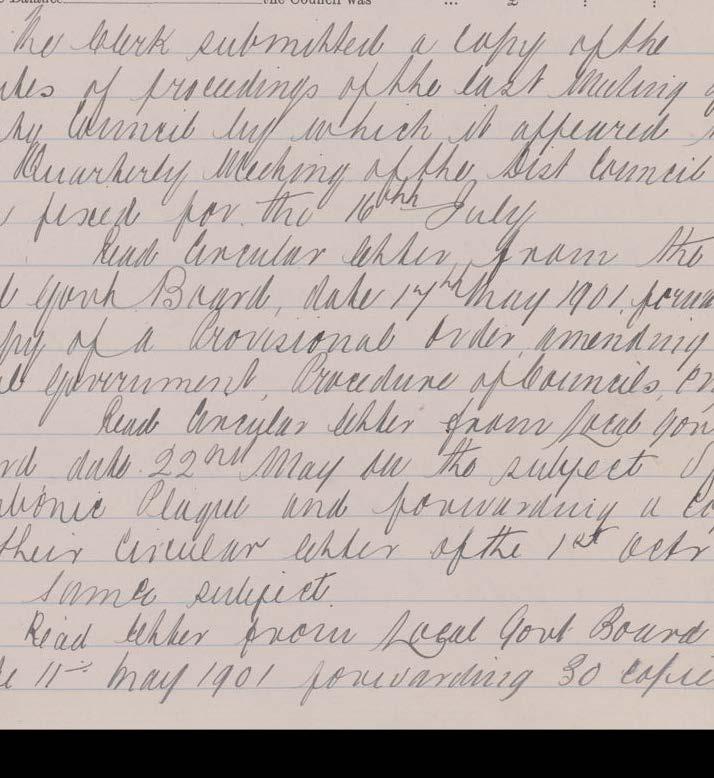 the Council was ... £ : :
The Clerk submitted a copy of the
utes of proceedings of the last Meeting o
ty Council by which it appeared
Quarterly Meeting of the Dist Council
fixed for the 16th July
Read Circular letter from the
l Govt Board, date 17th May 1901, forwa
py of a Provisional Order amending
al Government, Procedure of Councils, Or
Read Circular letter from Local Gov
rd date 22nd May on the subject of
ubonic Plague and forwarding a co
their Circular letter of the 1st Octr
same subject
Read letter from Local Govt Board
te 11th May 1901 forwarding 30 copie